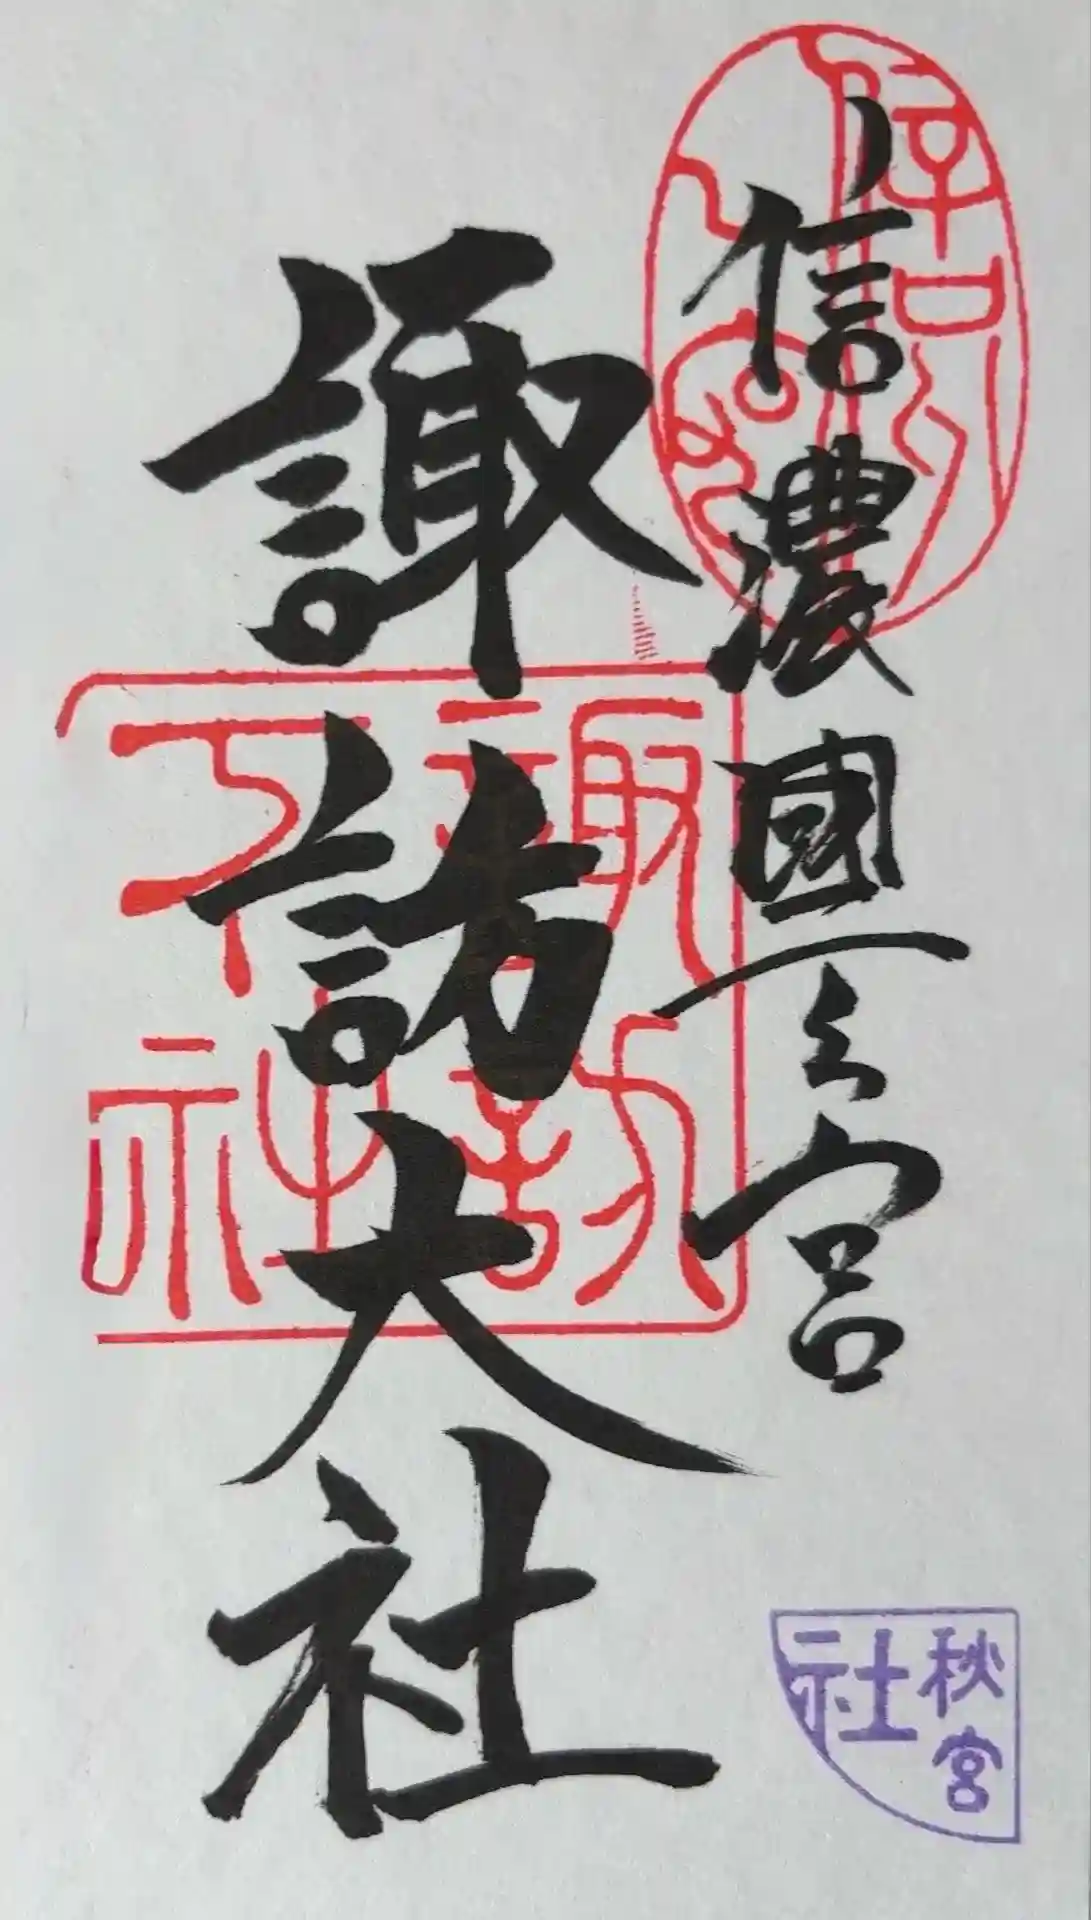 信濃國一之宮
諏訪大社
諏訪大社
秋宮
社